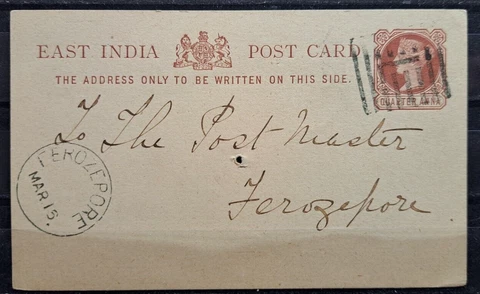 EAST INDIA POST CARD
THE ADDRESS ONLY TO BE WRITTEN ON THIS SIDE.
QUARTER ANNA
To The Post Master
Ferozepore
FEROZEPORE
MAR 15.